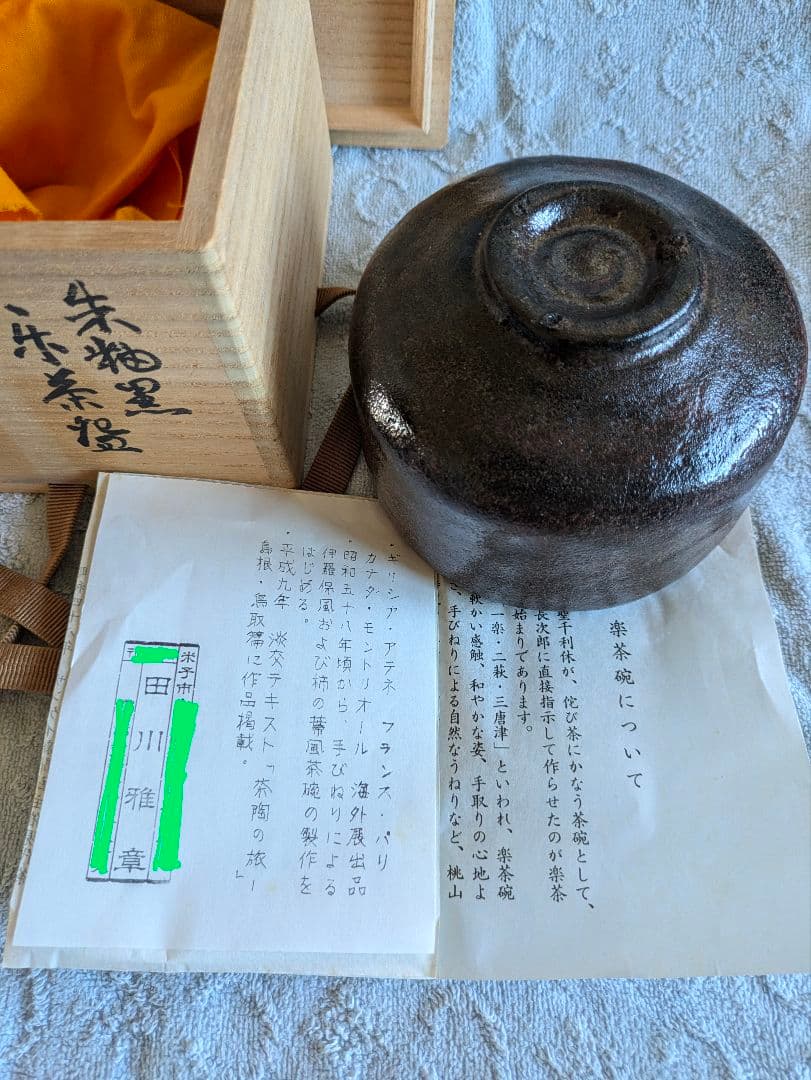 朱釉黒
楽茶盌
楽茶碗について
聖千利休が、侘び茶にかなう茶碗として、
長次郎に直接指示して作らせたのが楽茶
始まりであります。
一楽・二萩・三唐津」といわれ、楽茶碗
軟かい感触、和やかな姿、手取りの心地よ
さ、手びねりによる自然なうねりなど、桃山
・ギリシア・アテネ フランス・パリ
カナダ・モントリオール 海外展出品
・昭和五十八年頃から、手びねりによる
伊羅保風および柿の蔕風茶碗の製作を
はじめる。
・平成九年 淡交テキスト「茶陶の旅ー
島根・鳥取篇に作品掲載。」
米子市
田川雅章